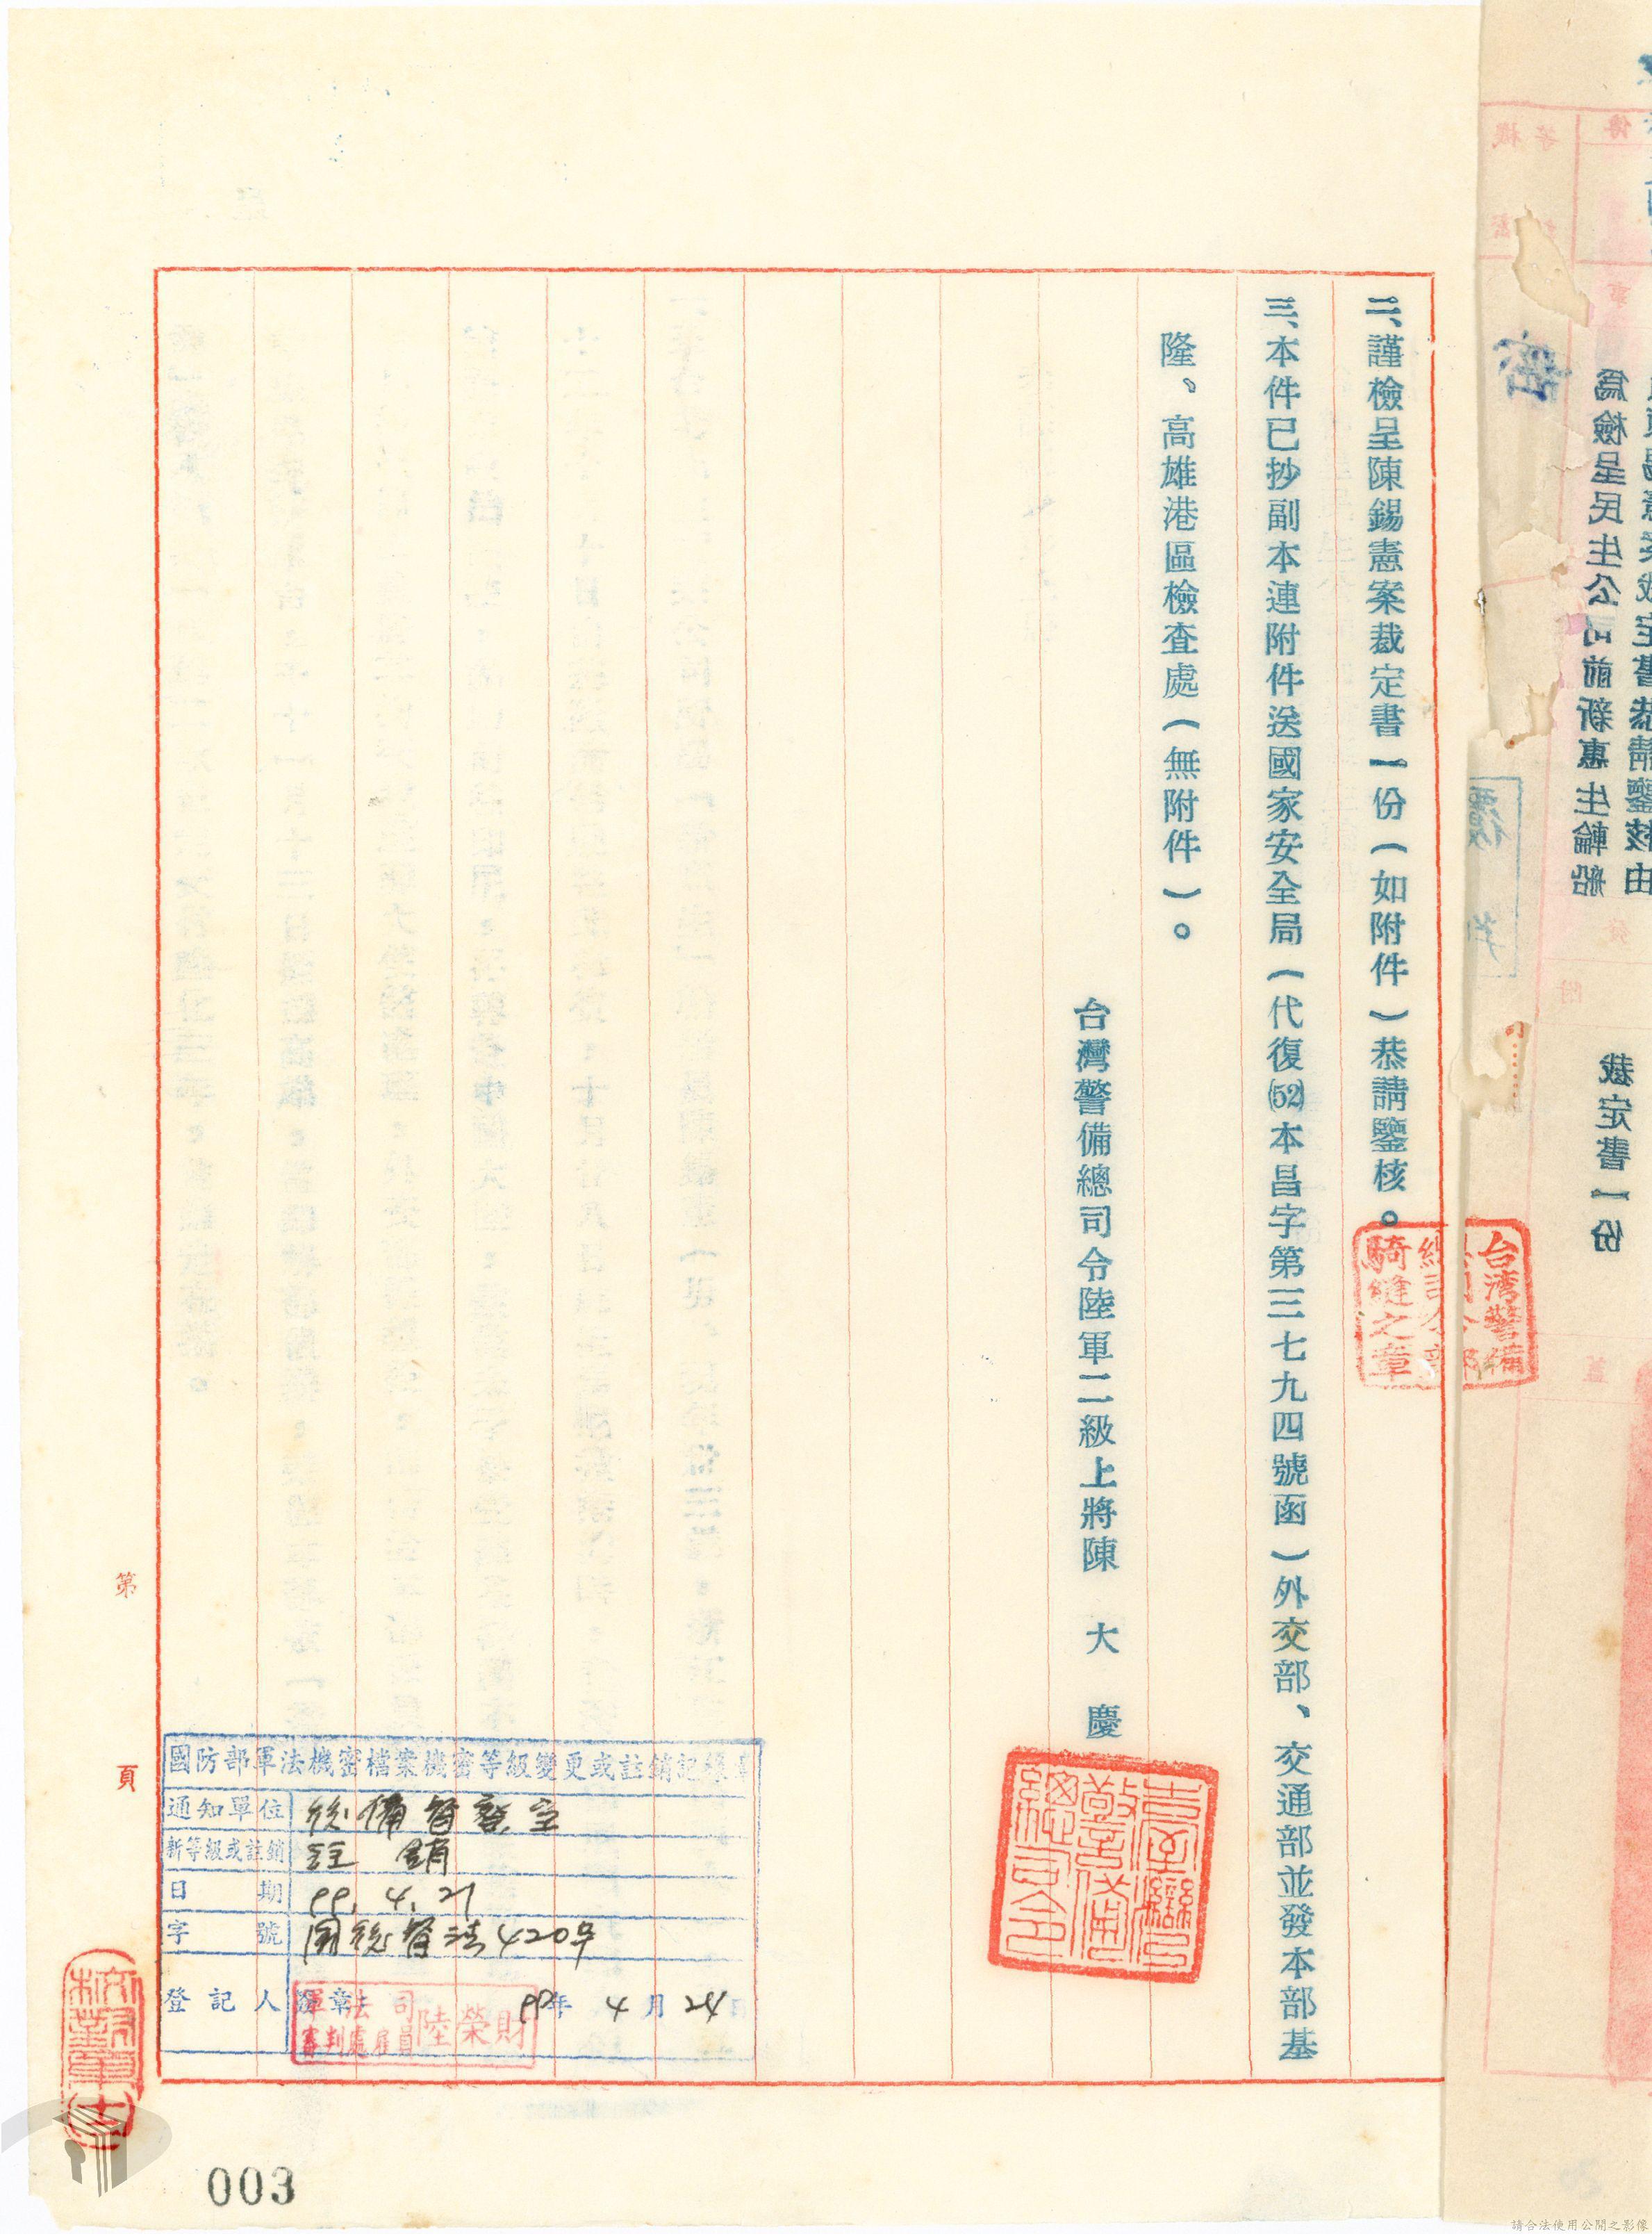 二、謹檢呈陳錫憲案裁定書一份（如附件）恭請鑒核。
三、本件已抄副本連附件送國家安全局（代復(52)本昌字第三七九四號函）外交部、交通部並發本部基
隆、高雄港區檢查處（無附件）。
台灣警備總司令陸軍二級上將陳大慶
臺灣警備總司令
台湾警備
騎縫之章
為檢呈民生公司前新惠生輪船
裁定書一份
密
第 頁
國防部軍法機密檔案機密等級變更或註銷記錄
通知單位 後備督察室
新等級或註銷 註銷
日期 99.4.21
字號 國後督法420号
登記人 簽章 99年4月24日
軍法司
審判處雇員 陸榮財
003
請合法使用公開之影像